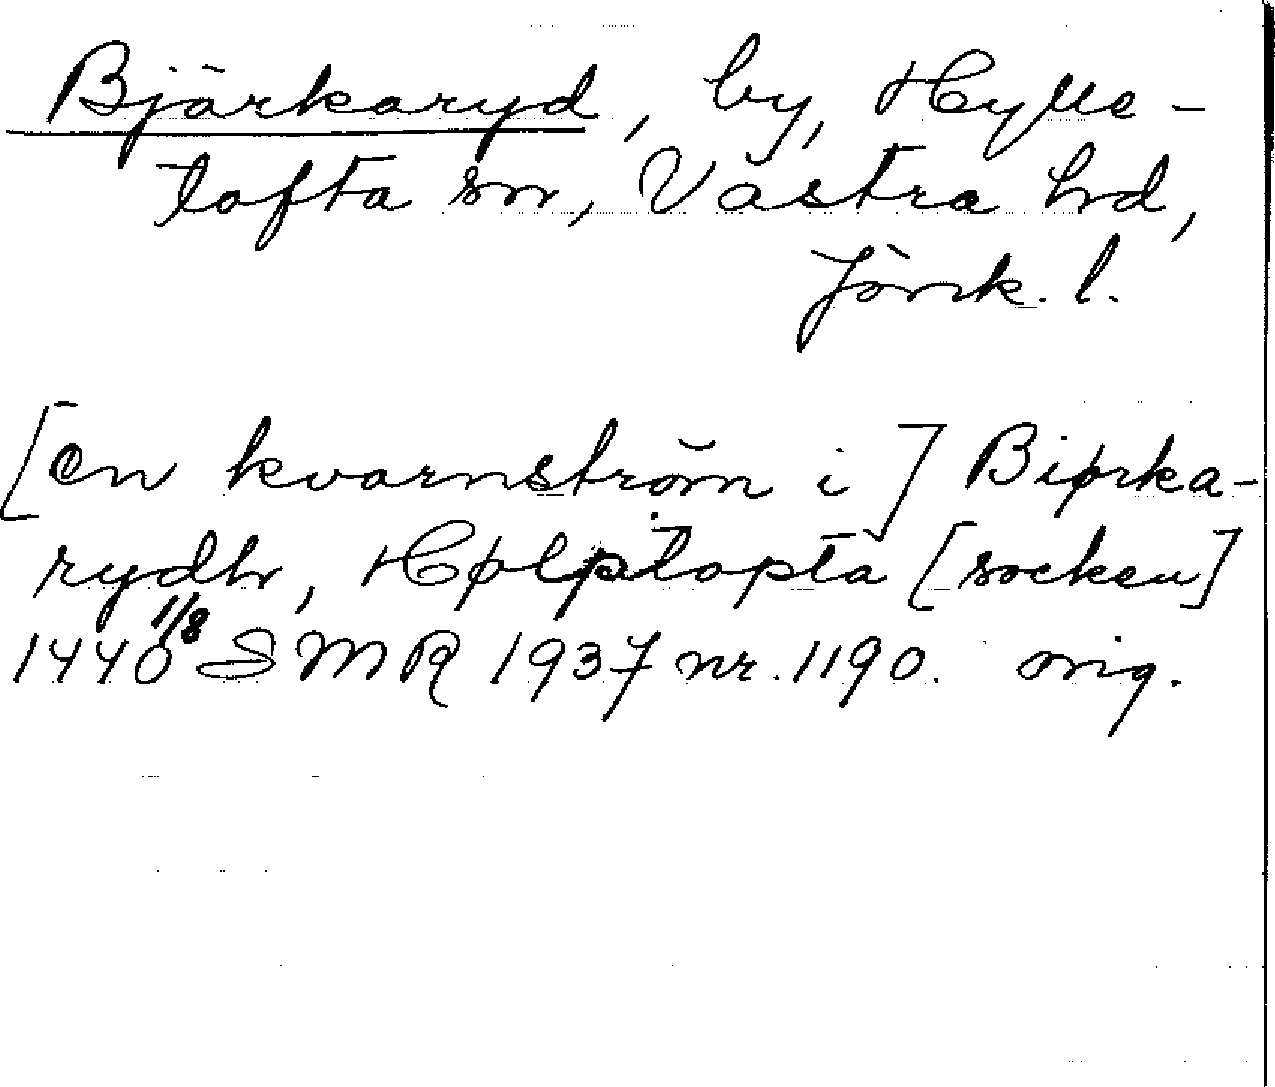 Bjärkaryd, by, Hylle-
tofta sn, Västra hd,
Jönk. l.
[en kvarnström i] Biørka-
rydh, Hølptopta [socken]
1440 1/8 SMR 1937 nr. 1190. orig.